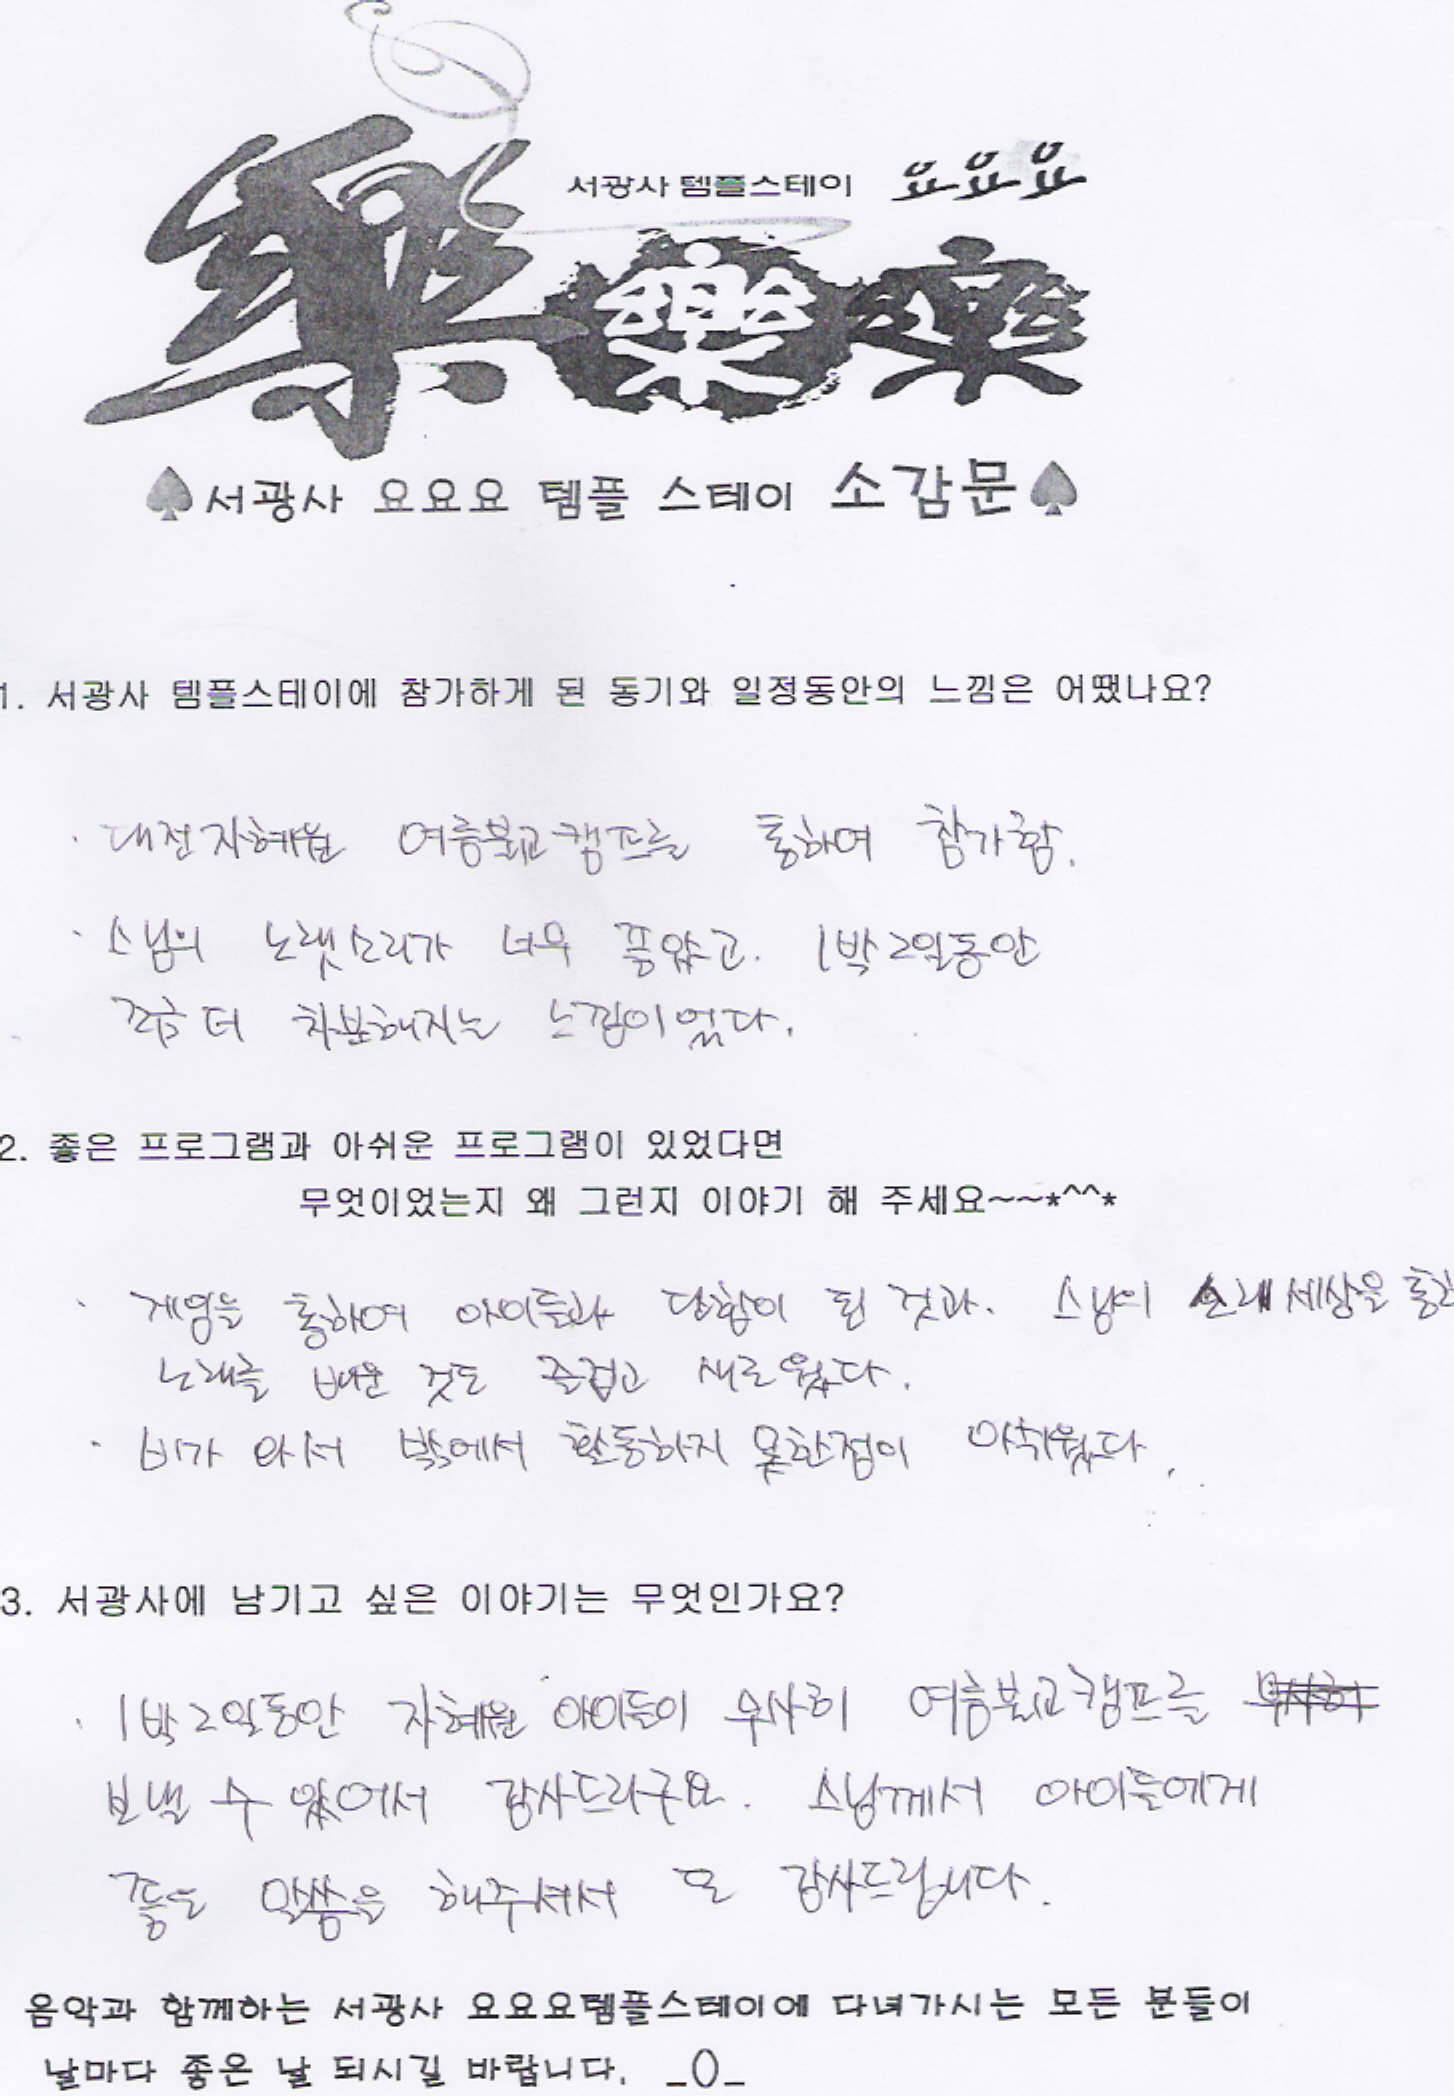 서광사 템플스테이 요요요
樂 樂 樂
서광사 요요요 템플 스테이 소감문
1. 서광사 템플스테이에 참가하게 된 동기와 일정동안의 느낌은 어땠나요?
· 대전자혜원 여름불교캠프를 통하여 참가함.
· 스님의 노랫소리가 너무 좋았고. 1박2일동안
조금 더 차분해지는 느낌이었다.
2. 좋은 프로그램과 아쉬운 프로그램이 있었다면
무엇이었는지 왜 그런지 이야기 해 주세요~~*^^*
· 게임을 통하여 아이들과 단합이 된 것과. 스님의 소래세상을 통한
노래를 배운 것도 즐겁고 새로웠다.
· 비가 와서 밖에서 활동하지 못한점이 아쉬웠다.
3. 서광사에 남기고 싶은 이야기는 무엇인가요?
· 1박2일동안 자혜원 아이들이 무사히 여름불교캠프를
보낼 수 있어서 감사드리구요. 스님께서 아이들에게
좋은 말씀을 해주셔서 또 감사드립니다.
음악과 함께하는 서광사 요요요템플스테이에 다녀가시는 모든 분들이
날마다 좋은 날 되시길 바랍니다. _()_